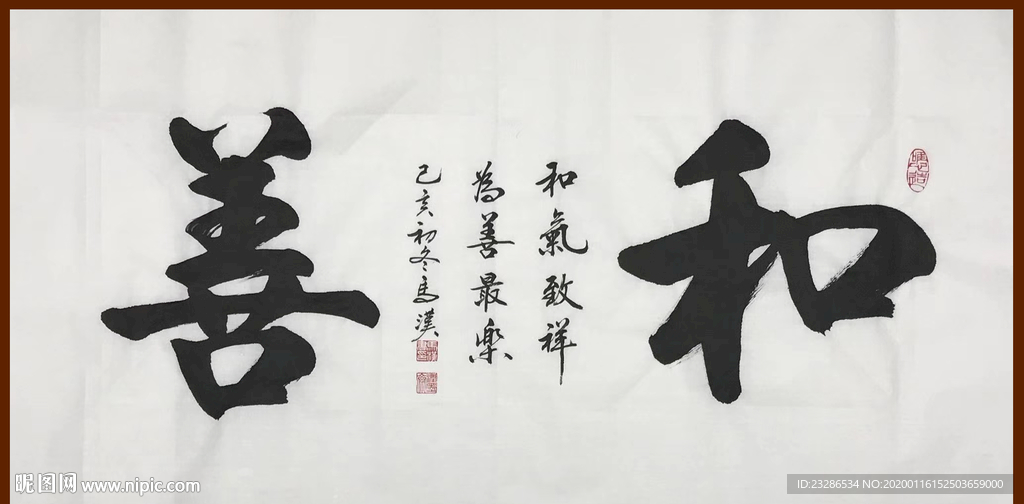 和
和氣致祥
為善最樂
己亥初冬馬漢
善
昵图网 www.nipic.com
ID:23286534 NO:20200116152503659000